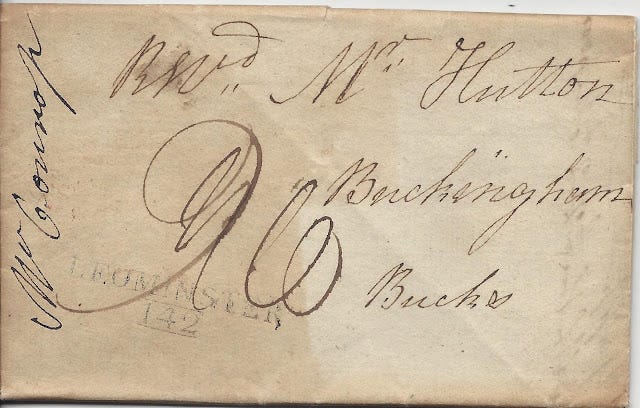 Revd Mr Hutton
Buckingham
Bucks
LEOMINSTER
142
Mr Connop